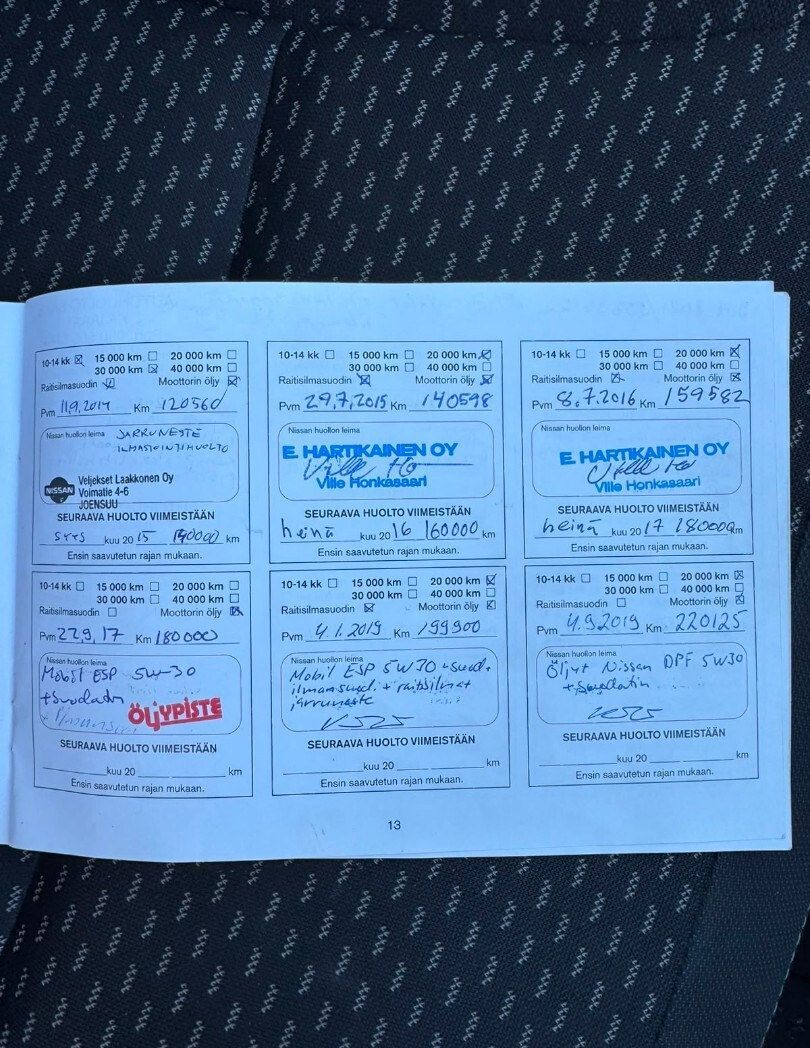 10-14 kk 15 000 km 20 000 km
30 000 km 40 000 km
Raitisilmasuodin Moottorin öljy
Pvm 11.9.2014 Km 120560
Nissan huollon leima JARRUNESTE
ILMASTOINTIHUOLTO
NISSAN
Veljekset Laakkonen Oy
Voimatie 4-6
JOENSUU
SEURAAVA HUOLTO VIIMEISTÄÄN
syys kuu 2015 140000 km
Ensin saavutetun rajan mukaan.
10-14 kk 15 000 km 20 000 km
30 000 km 40 000 km
Raitisilmasuodin Moottorin öljy
Pvm 29.7.2015 Km 140598
Nissan huollon leima
E. HARTIKAINEN OY
Ville Honkasaari
SEURAAVA HUOLTO VIIMEISTÄÄN
heinä kuu 2016 160000 km
Ensin saavutetun rajan mukaan.
10-14 kk 15 000 km 20 000 km
30 000 km 40 000 km
Raitisilmasuodin Moottorin öljy
Pvm 8.7.2016 Km 159582
Nissan huollon leima
E. HARTIKAINEN OY
Ville Honkasaari
SEURAAVA HUOLTO VIIMEISTÄÄN
heinä kuu 2017 180000 km
Ensin saavutetun rajan mukaan.
10-14 kk 15 000 km 20 000 km
30 000 km 40 000 km
Raitisilmasuodin Moottorin öljy
Pvm 22.9.17 Km 180000
Nissan huollon leima
Mobil ESP 5W-30
+suodatin
ÖLJYPISTE
SEURAAVA HUOLTO VIIMEISTÄÄN
kuu 20 km
Ensin saavutetun rajan mukaan.
10-14 kk 15 000 km 20 000 km
30 000 km 40 000 km
Raitisilmasuodin Moottorin öljy
Pvm 4.1.2019 Km 199900
Nissan huollon leima
Mobil ESP 5W30 +suod.
ilmansuod. + raitisilma+
jarruneste
SEURAAVA HUOLTO VIIMEISTÄÄN
kuu 20 km
Ensin saavutetun rajan mukaan.
10-14 kk 15 000 km 20 000 km
30 000 km 40 000 km
Raitisilmasuodin Moottorin öljy
Pvm 4.9.2019 Km 220125
Nissan huollon leima
Öljyt Nissan DPF 5W30
+suodatin
SEURAAVA HUOLTO VIIMEISTÄÄN
kuu 20 km
Ensin saavutetun rajan mukaan.
13